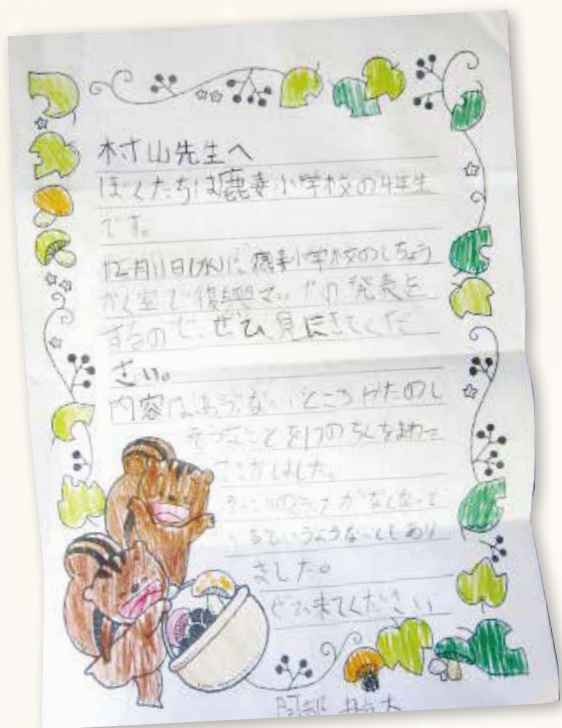 村山先生へ
ぼくたちは鹿妻小学校の4年生
です。
12月11日(水)に、鹿妻小学校のしちょう
かく室で復興マップの発表を
するので、ぜひ、見にきてくだ
さい。
内容はあぶないところやたのし
そうなことを
さがしました。
がなくなって
いるというような
ました。
ぜひ来てください
阿部